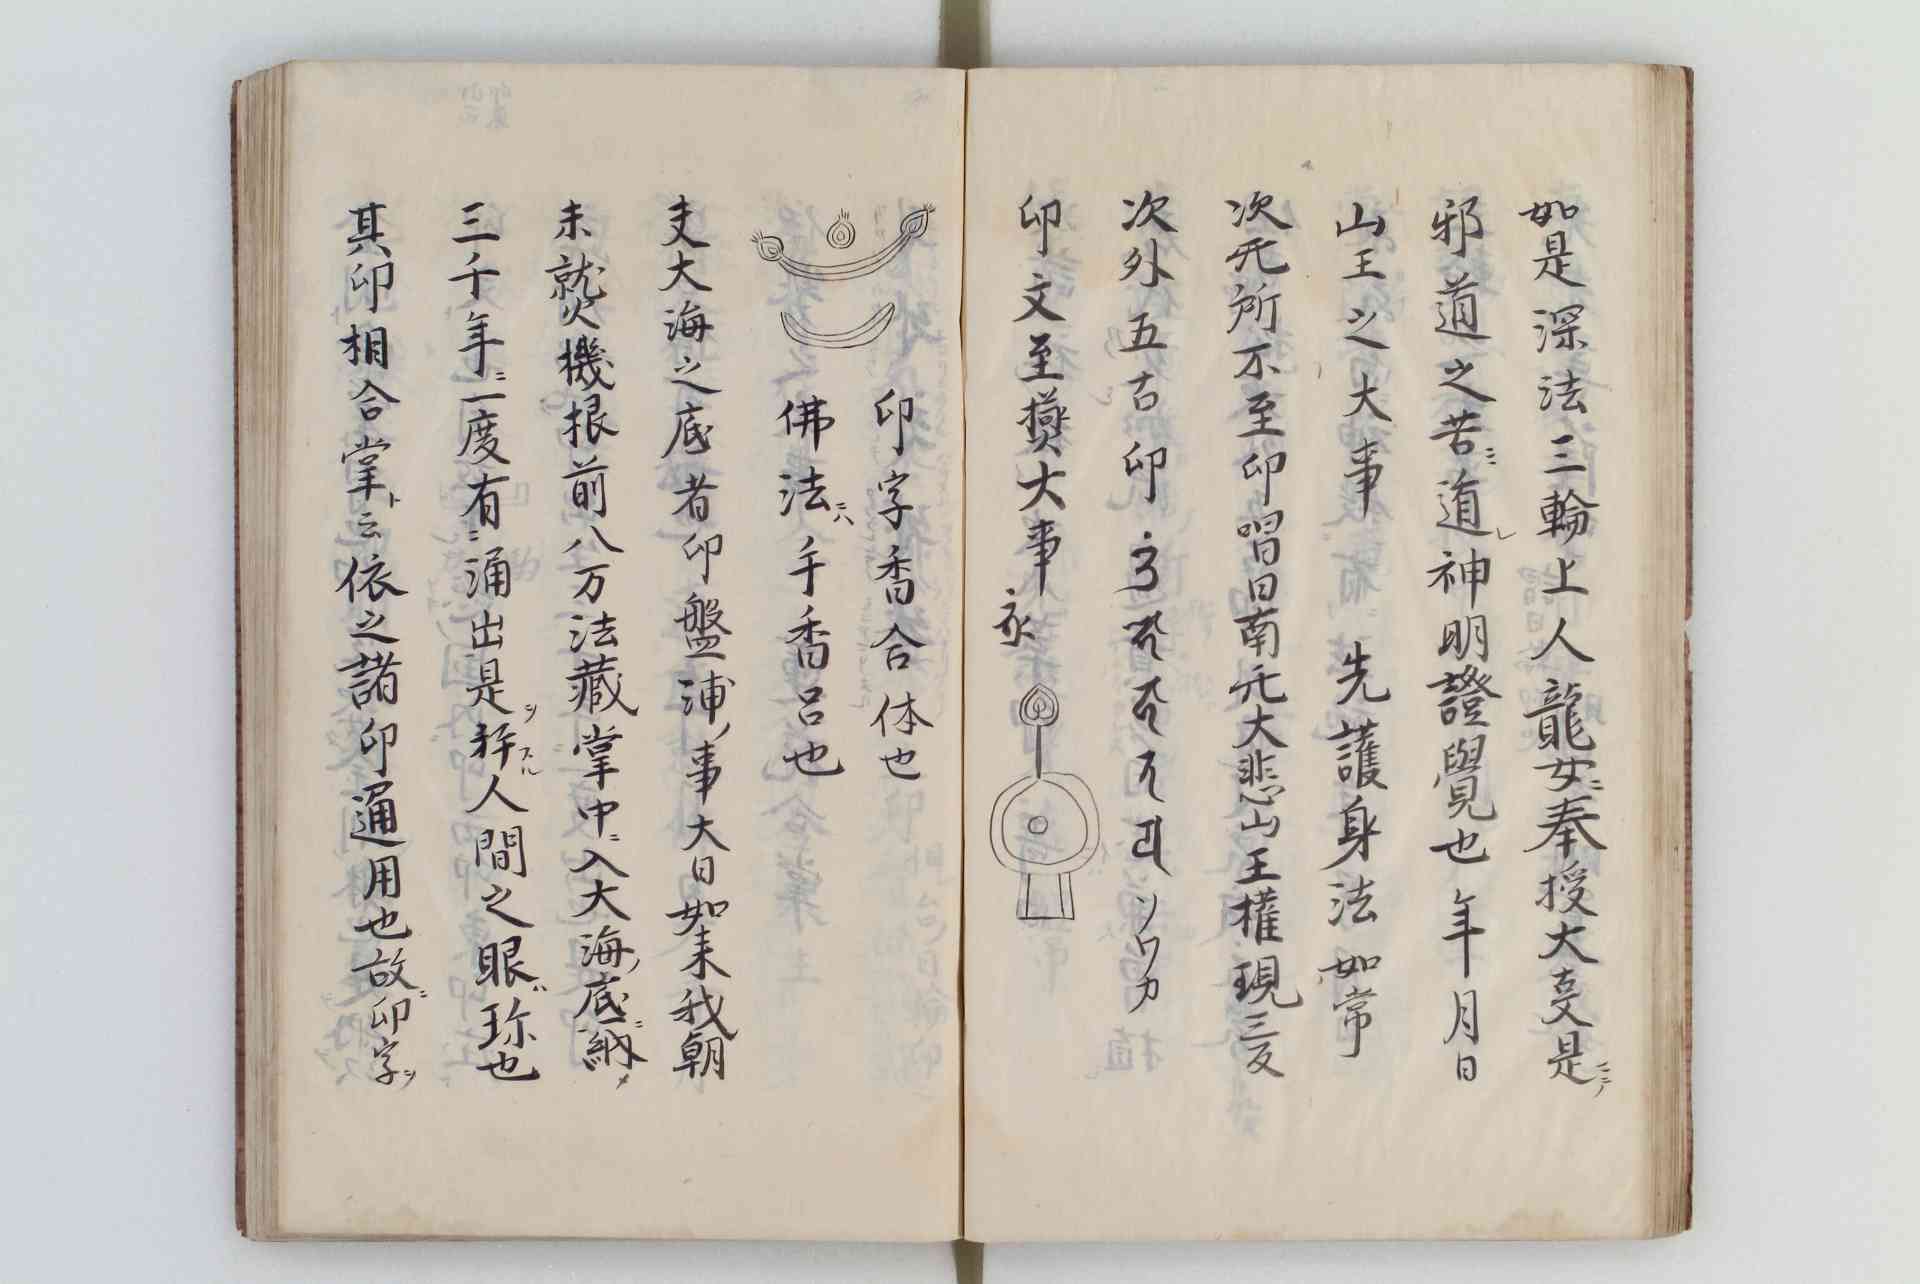 如是深法三輪上人龍女ニ奉授大支是ニシ
邪道之苦ニ道レ神明證覺也　年月日
山王之大事　先護身法如常
次无所不至印唱曰南无大悲山王權現三反
次外五古印 ソワカ
印文至 大事
印字香合体也
佛法ニハ手香呂也
夫大海之底者印盤浦ノ事大日如来我朝
未就 機根前八万法藏掌中ニ入大海ノ底ニ納メ
三千年ニ一度有ニ涌出是シ 人間之眼 也
其印相合掌ト云依之諸印通用也故ニ印字ヲ